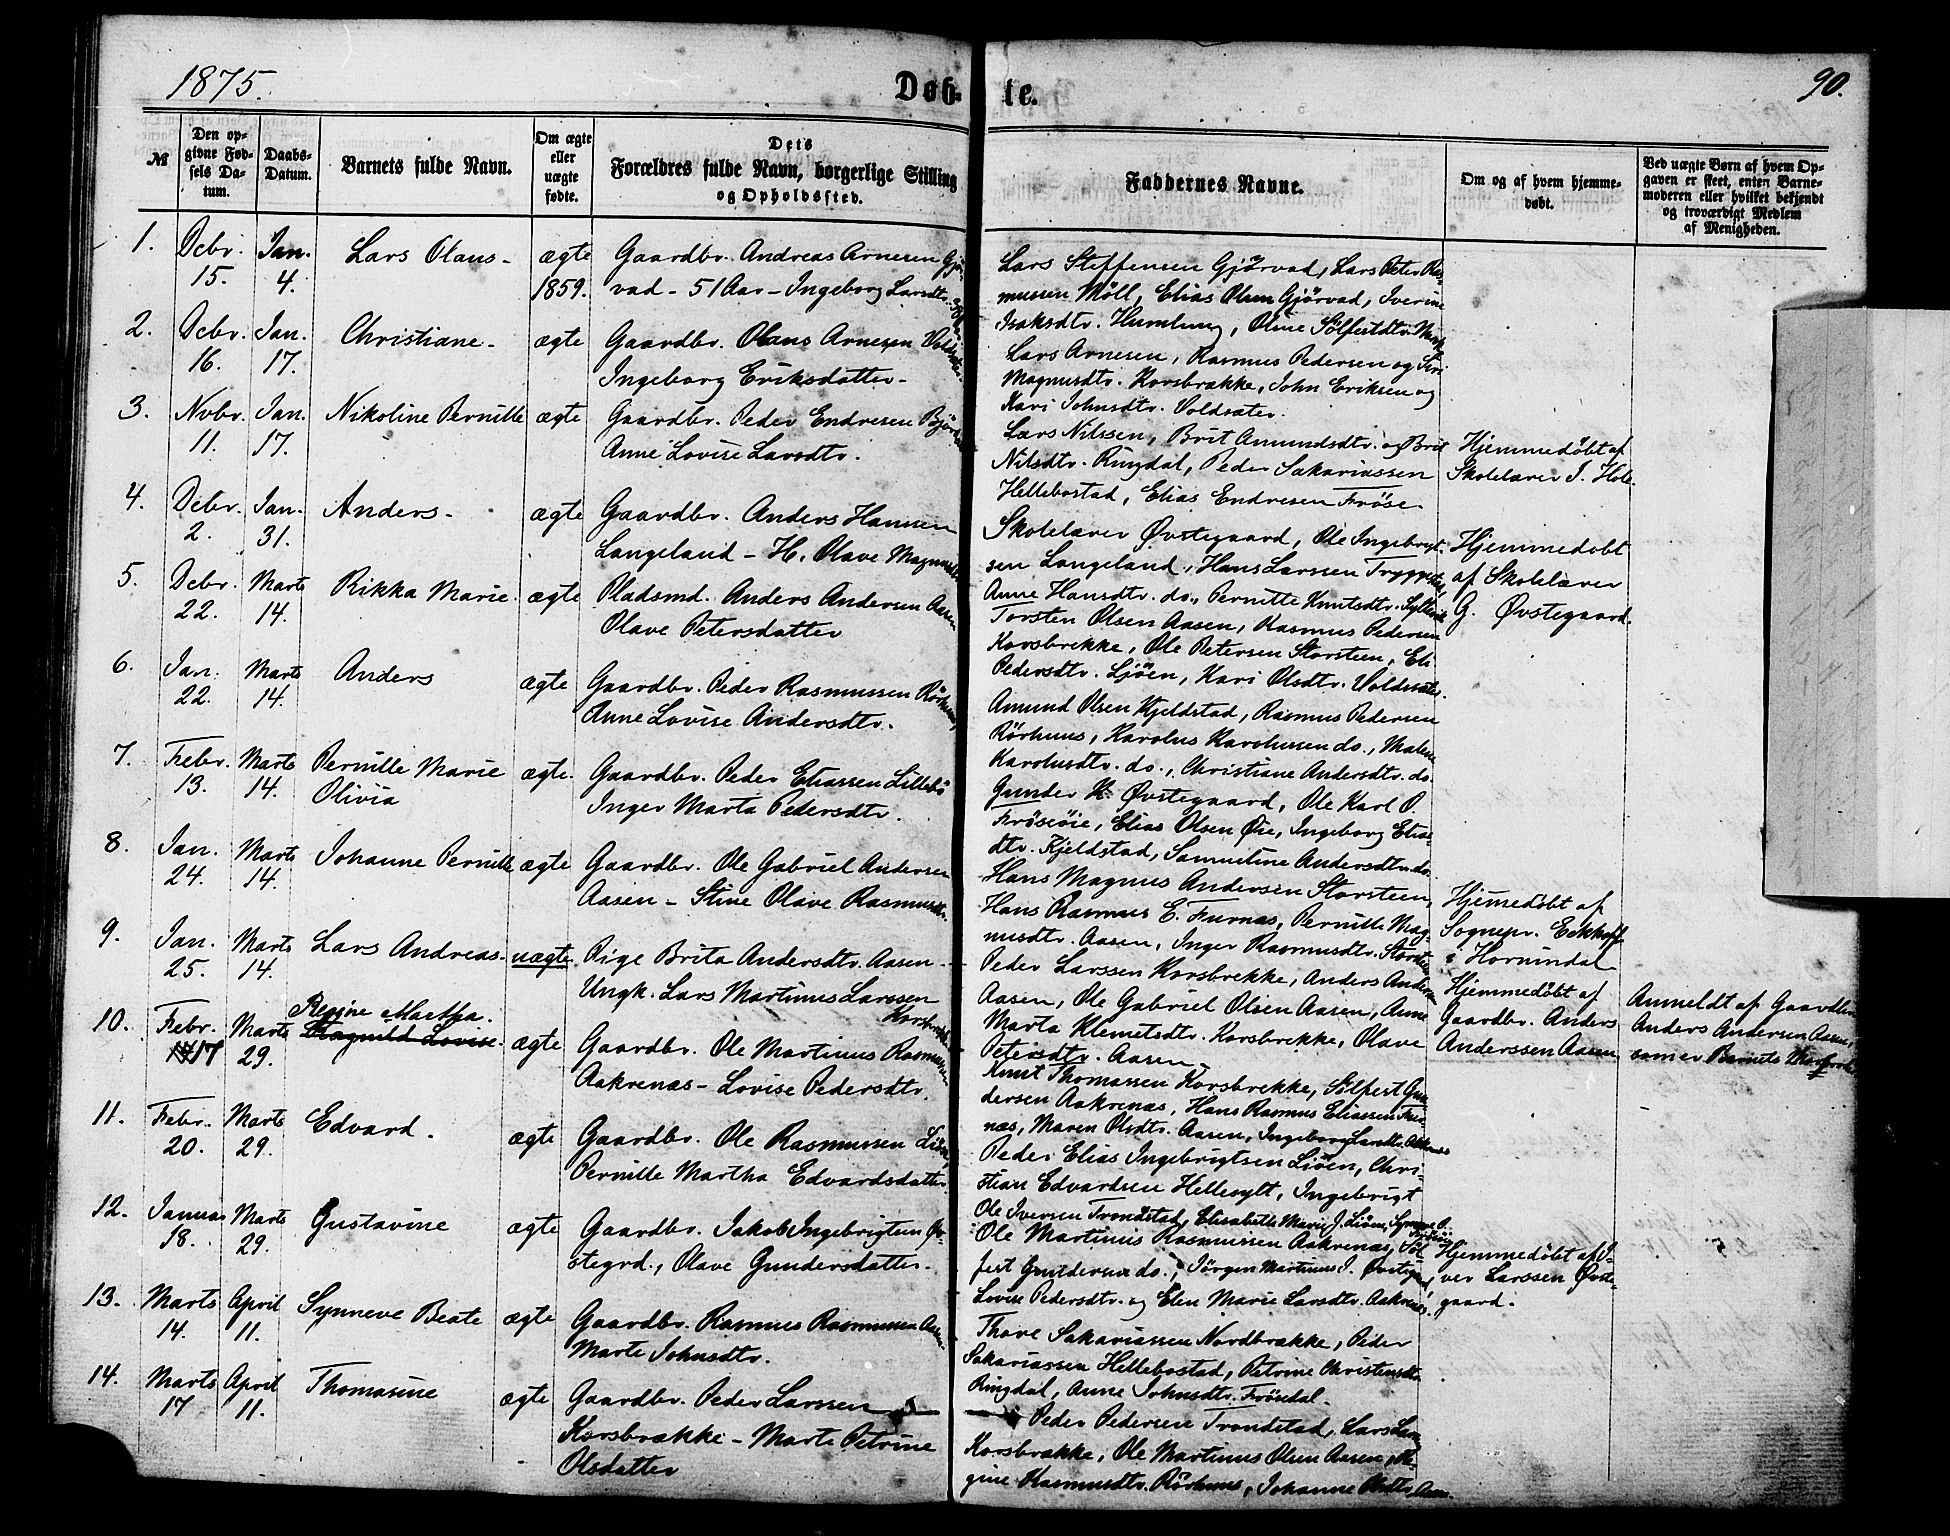 1875.
Døb-
te.
90.
№
Den op-
givne Fød-
sels Da-
tum.
Daabs-
Datum.
Barnets fulde Navn.
Om ægte
eller
uægte
fødte.
Dets
Forældres fulde Navn, borgerlige Stilling
og Opholdssted.
Faddernes Navne.
Om og af hvem hjemme-
døbt.
Ved uægte Børn af hvem Op-
gaven er skeet, enten Barne-
moderen eller hvilket bekjendt
og troværdigt Medlem
af Menigheden.
1.
Debr.
15.
Jan.
4.
Lars Olaus -
ægte
1859.
Gaardbr. Andreas Arnesen Gjör-
vad - 51 Aar - Ingeborg Larsdtr.
Lars Steffensen Gjörvad, Lars Peter Ras-
mussen Möll, Elias Olsen Gjörvad, Iverine
Isaksdtr. Humlung, Oline Sölfestdtr.
2.
Debr.
16.
Jan.
17.
Christiane -
ægte
Gaardbr. Olaus Arnesen Voldsæter.
Ingeborg Eriksdatter -
Lars Arnesen, Rasmus Pedersen og Siri
Magnusdtr. Korsbrække, John Eriksen og
Kari Johnsdtr. Voldsæter.
3.
Novbr.
11.
Jan.
17.
Nikoline Pernille
ægte
Gaardbr. Peder Endresen
Anne Lovise Larsdtr.
Lars Nilssen, Brit Amundsdtr. og Brit
Nilsdtr. Ringdal, Peder Sakariassen
Hellebostad, Elias Endresen Fröse.
Hjemmedöbt af
Skolelærer J. Hole.
4.
Debr.
2.
Jan.
31.
Anders -
ægte
Gaardbr. Anders Hansen
Langeland - H. Olave Magnusdtr.
Skolelærer Øvstegaard, Ole Ingebrigt-
sen Langeland, Hans Larssen Tryggestad,
Anne Hansdtr. do., Pernille Knutsdtr.
Hjemmedobt
af Skolelærer
G. Øvstegaard.
5.
Debr.
22.
Marts
14.
Rikka Marie.
ægte
Pladsmd. Anders Andersen Aasen
Olave Petersdatter
Torsten Olsen Aasen, Rasmus Pedersen
Korsbrekke, Ole Petersen Storsteen, Eli
Pedersdtr. Ljöen, Kari Olsdtr. Voldsæter.
6.
Jan.
22.
Marts
14.
Anders
ægte
Gaardbr. Peder Rasmussen Rörhuus,
Anne Lovise Andersdtr.
Amund Olsen Kjeldstad, Rasmus Pedersen
Rörhuus, Karolus Karolussen do., Malene
Karolusdtr. do., Christiane Andersdtr. do.
7.
Febr.
13.
Marts
14.
Pernille Marie
Olivia
ægte.
Gaardbr. Peder Eliassen Lillebö
Inger Marta Pedersdtr.
Gunder K. Øvstegaard, Ole Karl P.
Fröseöie, Elias Olsen Øie, Ingeborg Elias-
dtr. Kjeldstad, Samueline Andersdtr. do.
8.
Jan.
24.
Marts
14.
Johanne Pernille
ægte
Gaardbr. Ole Gabriel Andersen
Aasen - Stine Olave Rasmusdtr.
Hans Magnus Andersen Storsteen,
Hans Rasmus E. Furnæs, Pernille Mag-
nusdtr. Aasen, Inger Rasmusdtr. Storsteen
Hjemedöbt af
Sognepr. Eckhoff
i Hornindal
9.
Jan.
25.
Marts
14.
Lars Andreas.
uægte
Pige Brita Andersdtr. Aasen -
Ungk. Lars Martinus Larssen
Korsbrekke
Peder Larssen Korsbrekke, Anders Andersen
Aasen, Ole Gabriel Olsen Aasen, Anne
Marta Klemetsdtr. Korsbrekke, Olave
Petersdtr. Aasen
Hjemmedöbt af
Gaardbr. Anders
Anderssen Aasen
Anmeldt af Gaardbr.
Anders Andersen Aasen,
som er Barnets Morfader
10.
Febr.
17
Marts
29.
Regine Martha.
Ragnild Lovise.
ægte
Gaardbr. Ole Martinus Rasmussen
Aakrenæs - Lovise Pedersdtr.
Knut Thomassen Korsbrekke, Sölfest Gun-
dersen Aakrenæs, Hans Rasmus Eliassen Fur-
næs, Maren Olsdtr. Aasen, Ingeborg Larsdtr. Aakrenæs
11.
Febr.
20.
Marts
29.
Edvard.
ægte
Gaardbr. Ole Rasmussen Liöen,
Pernille Martha Edvardsdatter.
Peder Elias Ingebrigtsen Liöen, Chri-
stian Edvardsen Hellesylt, Ingebrigt
Ole Iversen Trondstad, Elisabeth Marie J. Liöen,
12.
Januar
18.
Marts
29.
Gustavine
ægte
Gaardbr. Jakob Ingebrigtsen Öv-
stegrd., Olave Gundersdatter.
Ole Martinus Rasmussen Aakrenæs, Söl-
fest Gundersen do., Jörgen Martinus I. Øvstegaard,
Lovise Pedersdtr. og Elen Marie Larsdtr. Aakrenæs.
Hjemmedöbt af I-
ver Larssen Øvste-
gaard.
13.
Marts
14.
April
11.
Synneve Beate
ægte
Gaardbr. Rasmus Rasmussen Aasen
Marte Johnsdtr.
Thore Sakariassen Nordbrække, Peder
Sakariassen Hellebostad, Petrine Christensdtr.
Ringdal, Anne Johnsdtr. Frösedal.
14.
Marts
17
April
11.
Thomasine
ægte
Gaardbr. Peder Larssen
Korsbrække - Marte Petrine
Olsdatter
Peder Pedersen Trondstad, Lars Larssen
Korsbrække, Ole Martinus Olsen Aasen, Re-
gine Rasmusdtr. Rörhuus, Johanne Olsdtr. Aasen.